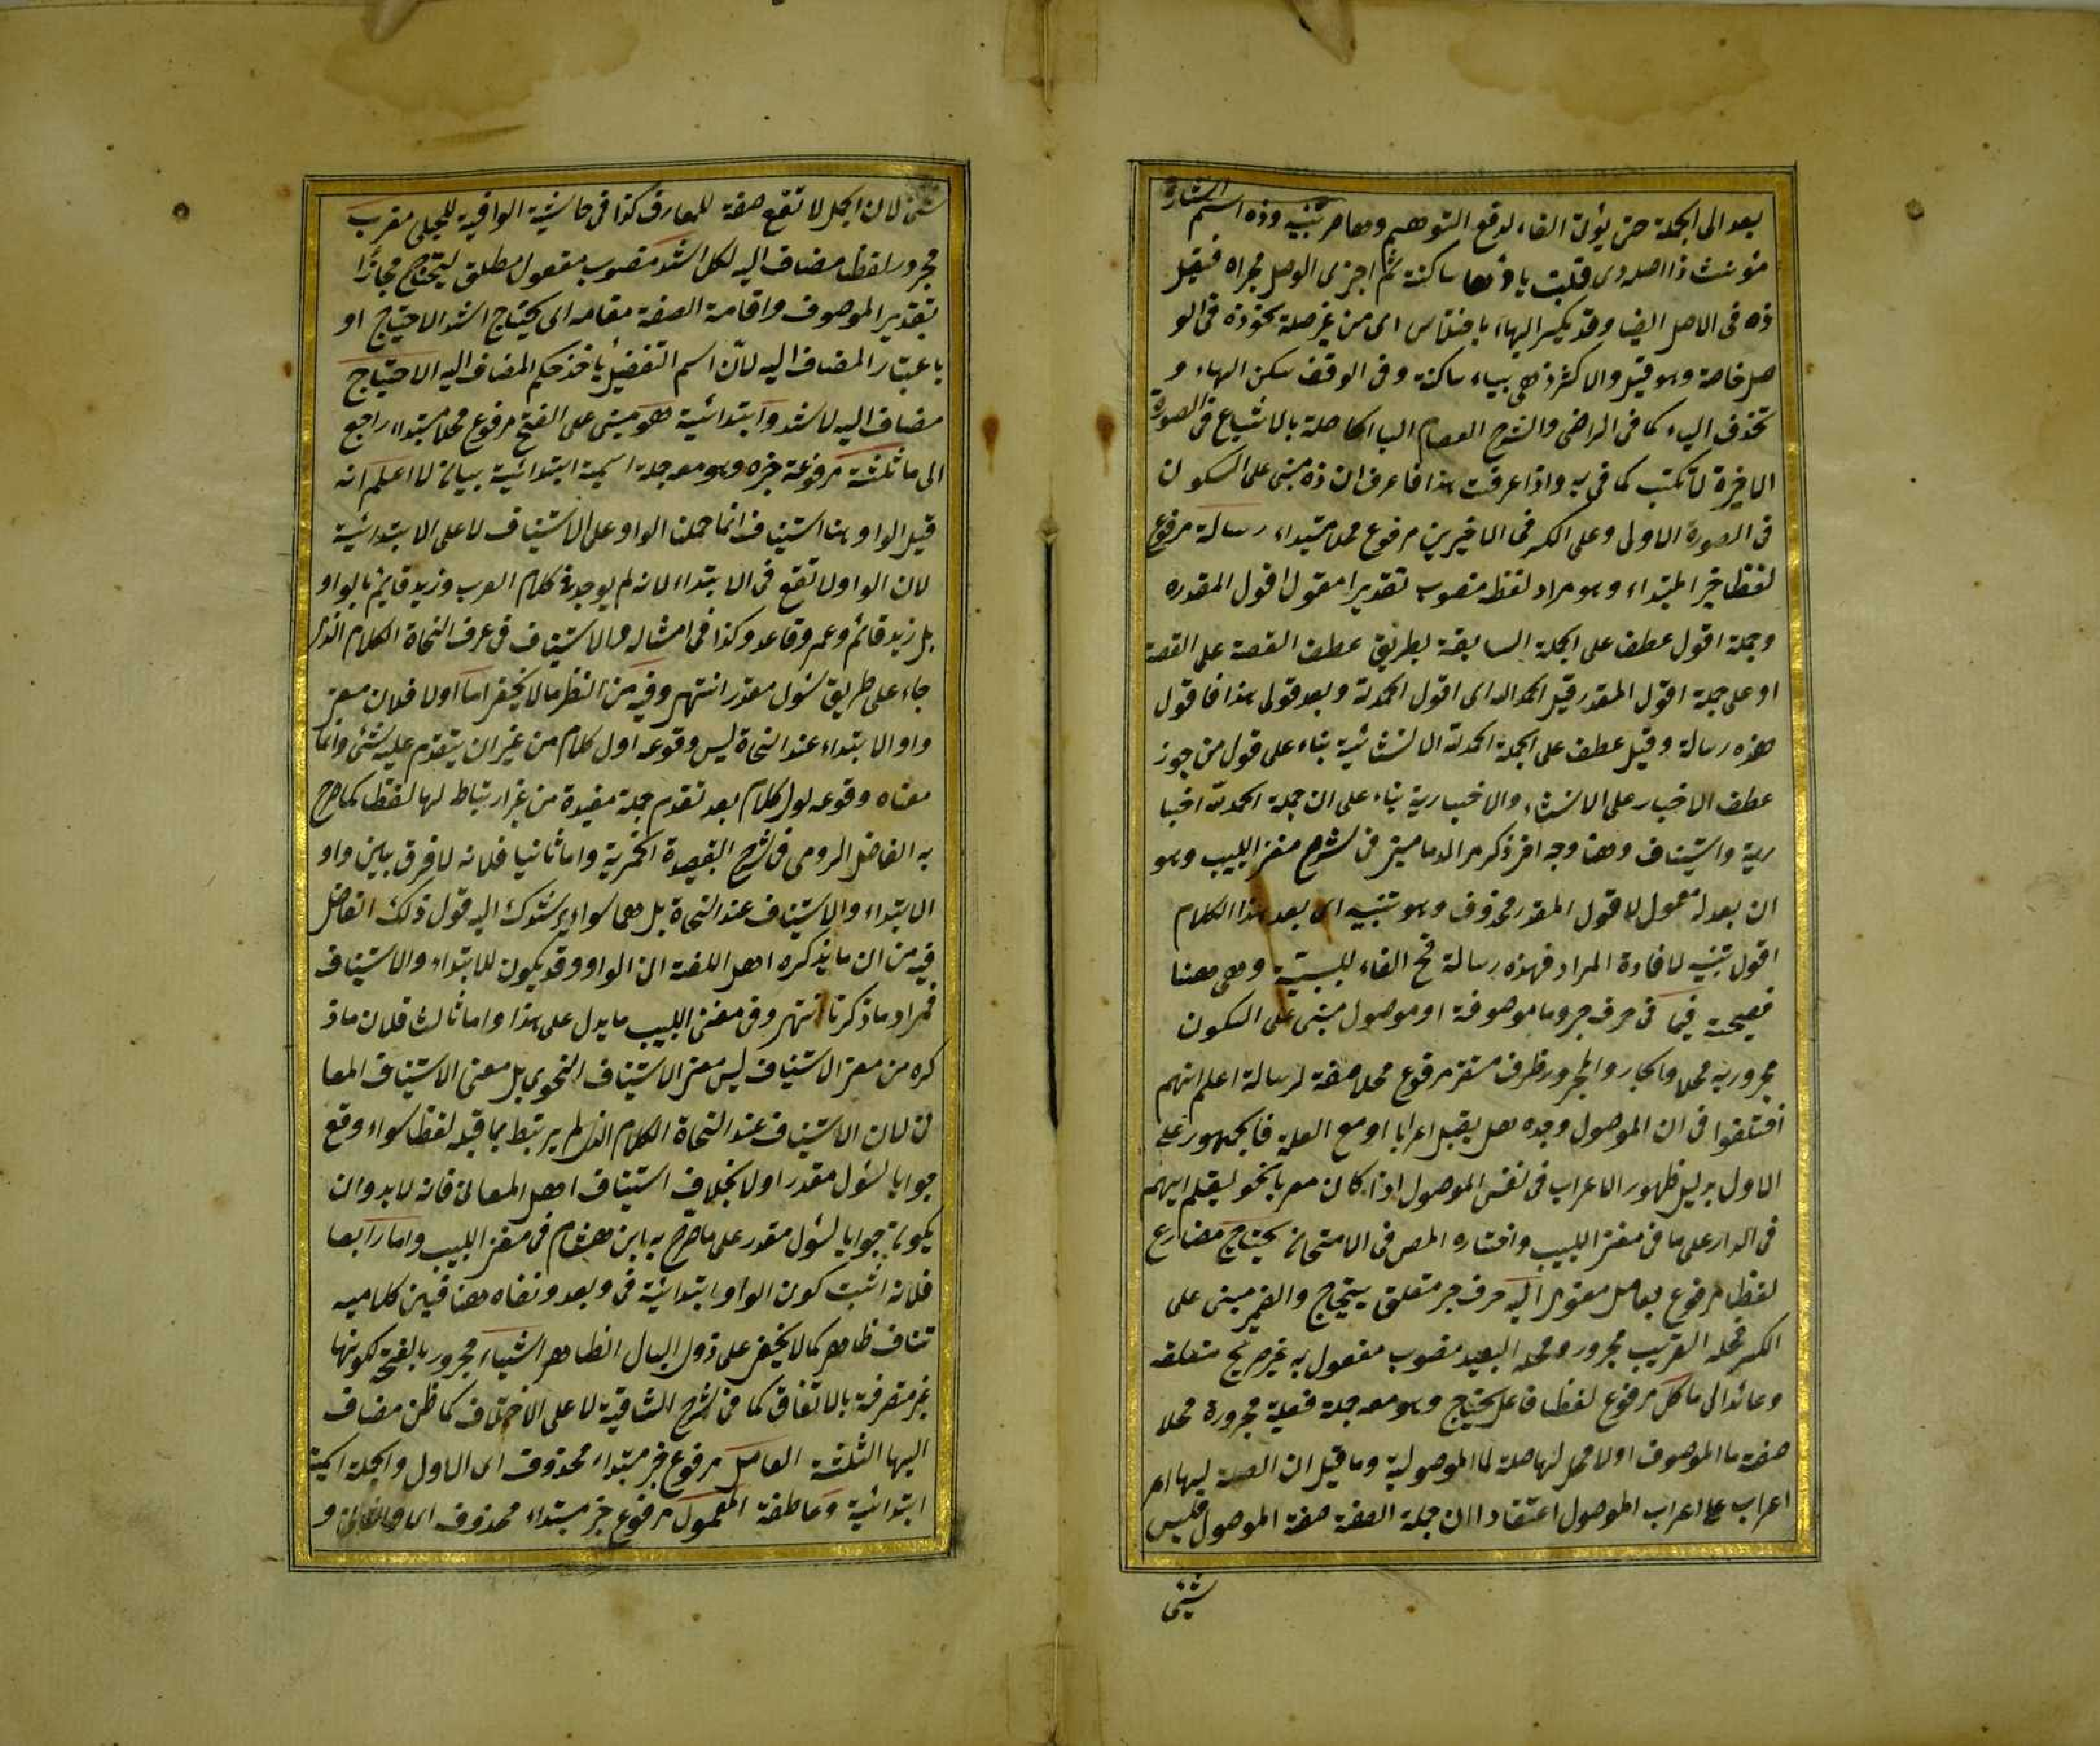 بعد الى الجملة حتى يؤتى الفاء لدفع التوهم وها حرف تنبيه وذه اسم اشارة
مؤنث ذا اصله ذى قلبت ياؤها ساكنة ثم اجرى الوصل مجراه فقيل
ذه فى الاصل ايضا وقد يكسر الهاء باختلاس اى من غير صلة نحو ذه فى الو
صل خاصة وهو قليل والاكثر ذهى بياء ساكنة وفى الوقف سكن الهاء و
تحذف الياء كما فى الرضى والشرح العصام الياء الحاصلة بالاشباع فى الصورة
الاخيرة لا تكتب كما فى به واذا عرفت هذا فاعرف ان ذه مبنى على السكون
فى الصورة الاولى وعلى الكسر فى الاخيرين مرفوع محلا مبتداء رسالة مرفوع
لفظا خبر المبتداء وهو مراد لفظه منصوب تقديرا مقول اقول المقدره
وجملة اقول عطف على الجملة السابقة بطريق عطف القصة على القصة
او على جملة اقول المقدر قبل الحمد لله اى اقول الحمدلة وبعد قولى هذا فاقول
هذه رسالة وقيل عطف على الجملة الحمدلة الانشائية بناء على قول من جوز
عطف الاخبار على الانشاء والاخبارية بناء على ان جملة الحمدلة اخبا
رية واستيناف وهنا وجه اخر ذكره الدمامينى فى شرح مغنى اللبيب وهو
ان بعد له معمول لاقول المقدر محذوف وهو تنبيه اى بعد هذا الكلام
اقول تنبيه لافادة المراد فهذه رسالة فح الفاء للسببية وهى هنا
فصيحة فيما فى حرف جر وما موصوفة او موصول مبنى على السكون
مجرور به محلا والجار والمجرور ظرف مستقر مرفوع محلا صفة لرسالة اعلم انهم
اختلفوا فى ان الموصول وحده هل يقبل اعرابا او مع الصلة فالجمهور على
الاول بدليل ظهور الاعراب فى نفس الموصول اذا كان معربا نحو ليقم ايهم
فى الدار على ما فى مغنى اللبيب واختاره المص فى الامتحان يحتاج مضارع
لفظا مرفوع بعامل معنوى اليه حرف جر متعلق بيحتاج والضمير مبنى على
الكسر فمحله القريب مجرور ومحله البعيد منصوب مفعول به غير صريح متعلقه
وعائد الى ما كل مرفوع لفظا فاعل يحتاج وهو معه جملة فعلية مجرورة محلا
صفة ما الموصوف اولا محل لها صلة لما الموصولية وما قيل ان الصلة لها
اعراب على اعراب الموصول اعتقادا ان جملة الصفة صفة الموصول فليس
شئ
شئ لان الجمل لا تقع صفة للمعارف كذا فى حاشية الوافية للجلبى معرب
مجرور لفظا مضاف اليه لكل اشد منصوب مفعول مطلق ليحتاج مجازا
بتقدير الموصوف واقامة الصفة مقامه اى يحتاج اشد الاحتياج او
باعتبار المضاف اليه لان اسم التفضيل ياخذ حكم المضاف اليه الاحتياج
مضاف اليه لاشد وابتدائية هو مبنى على الفتح مرفوع محلا مبتداء راجع
الى ما ثلثة مرفوعة خبره وهو معه جملة اسمية ابتدائية بيانا لا اعلم انه
قيل الواو هنا استيناف انما حملنا الواو على الاستيناف لا على الابتدائية
لان الواو لا تقع فى الابتداء لانه لم يوجد فى كلام العرب وزيد قايم بالواو
بل زيد قائم وعمرو قاعد وكذا فى امثاله والاستيناف فى عرف النحاة الكلام الذى
جاء على طريق سؤل مقدر انتهى وفيه من النظر ما لا يخفى اما اولا فلان معنى
واو الابتداء عند النحاة ليس وقوعه اول كلام من غير ان يتقدم عليه شئ وانما
معناه وقوعه اول كلام بعد تقدم جملة مفيدة من غير ارتباط لها لفظا كما صرح
به الفاضل الرومى فى شرح القصيدة الخمرية واما ثانيا فلانه لا فرق بين واو
الابتداء والاستيناف عند النحاة بل هما سواء يرشدك اليه قول ذلك الفاضل
فيه من ان ما يذكره اهل اللغة ان الواو وقد يكون للابتداء والاستيناف
فمراد ما ذكرنا انتهى وفى مغنى اللبيب ما يدل على هذا واما ثالثا فلان ماذ
كره من معنى الاستيناف ليس معنى الاستيناف النحوى بل معنى الاستيناف المعا
نى لان الاستيناف عند النحاة الكلام الذى لم يرتبط بما قبله لفظا سواء وقع
جوابا لسؤل مقدر اولا بخلاف استيناف اهل المعانى فانه لابد وان
يكون جوابا لسؤل مقدر على ما صرح به ابن هشام فى مغنى اللبيب واما رابعا
فلانه اثبت كون الواو ابتدائية فى وبعد ونفاه هنا فبين كلاميه
تناف ظاهر كما لا يخفى على ذوى البال الظاهر اشياء مجرور بالفتح لكونها
غير متصرفة بالاتفاق كما فى شرح الشافية لا على الاختلاف كما ظن مضاف
اليها الثلثة العامل مرفوع خبر مبتداء محذوف اى الاول والجملة اسمية
ابتدائية وعاطفة المعمول مرفوع خبر مبتداء محذوف اى والثانى و